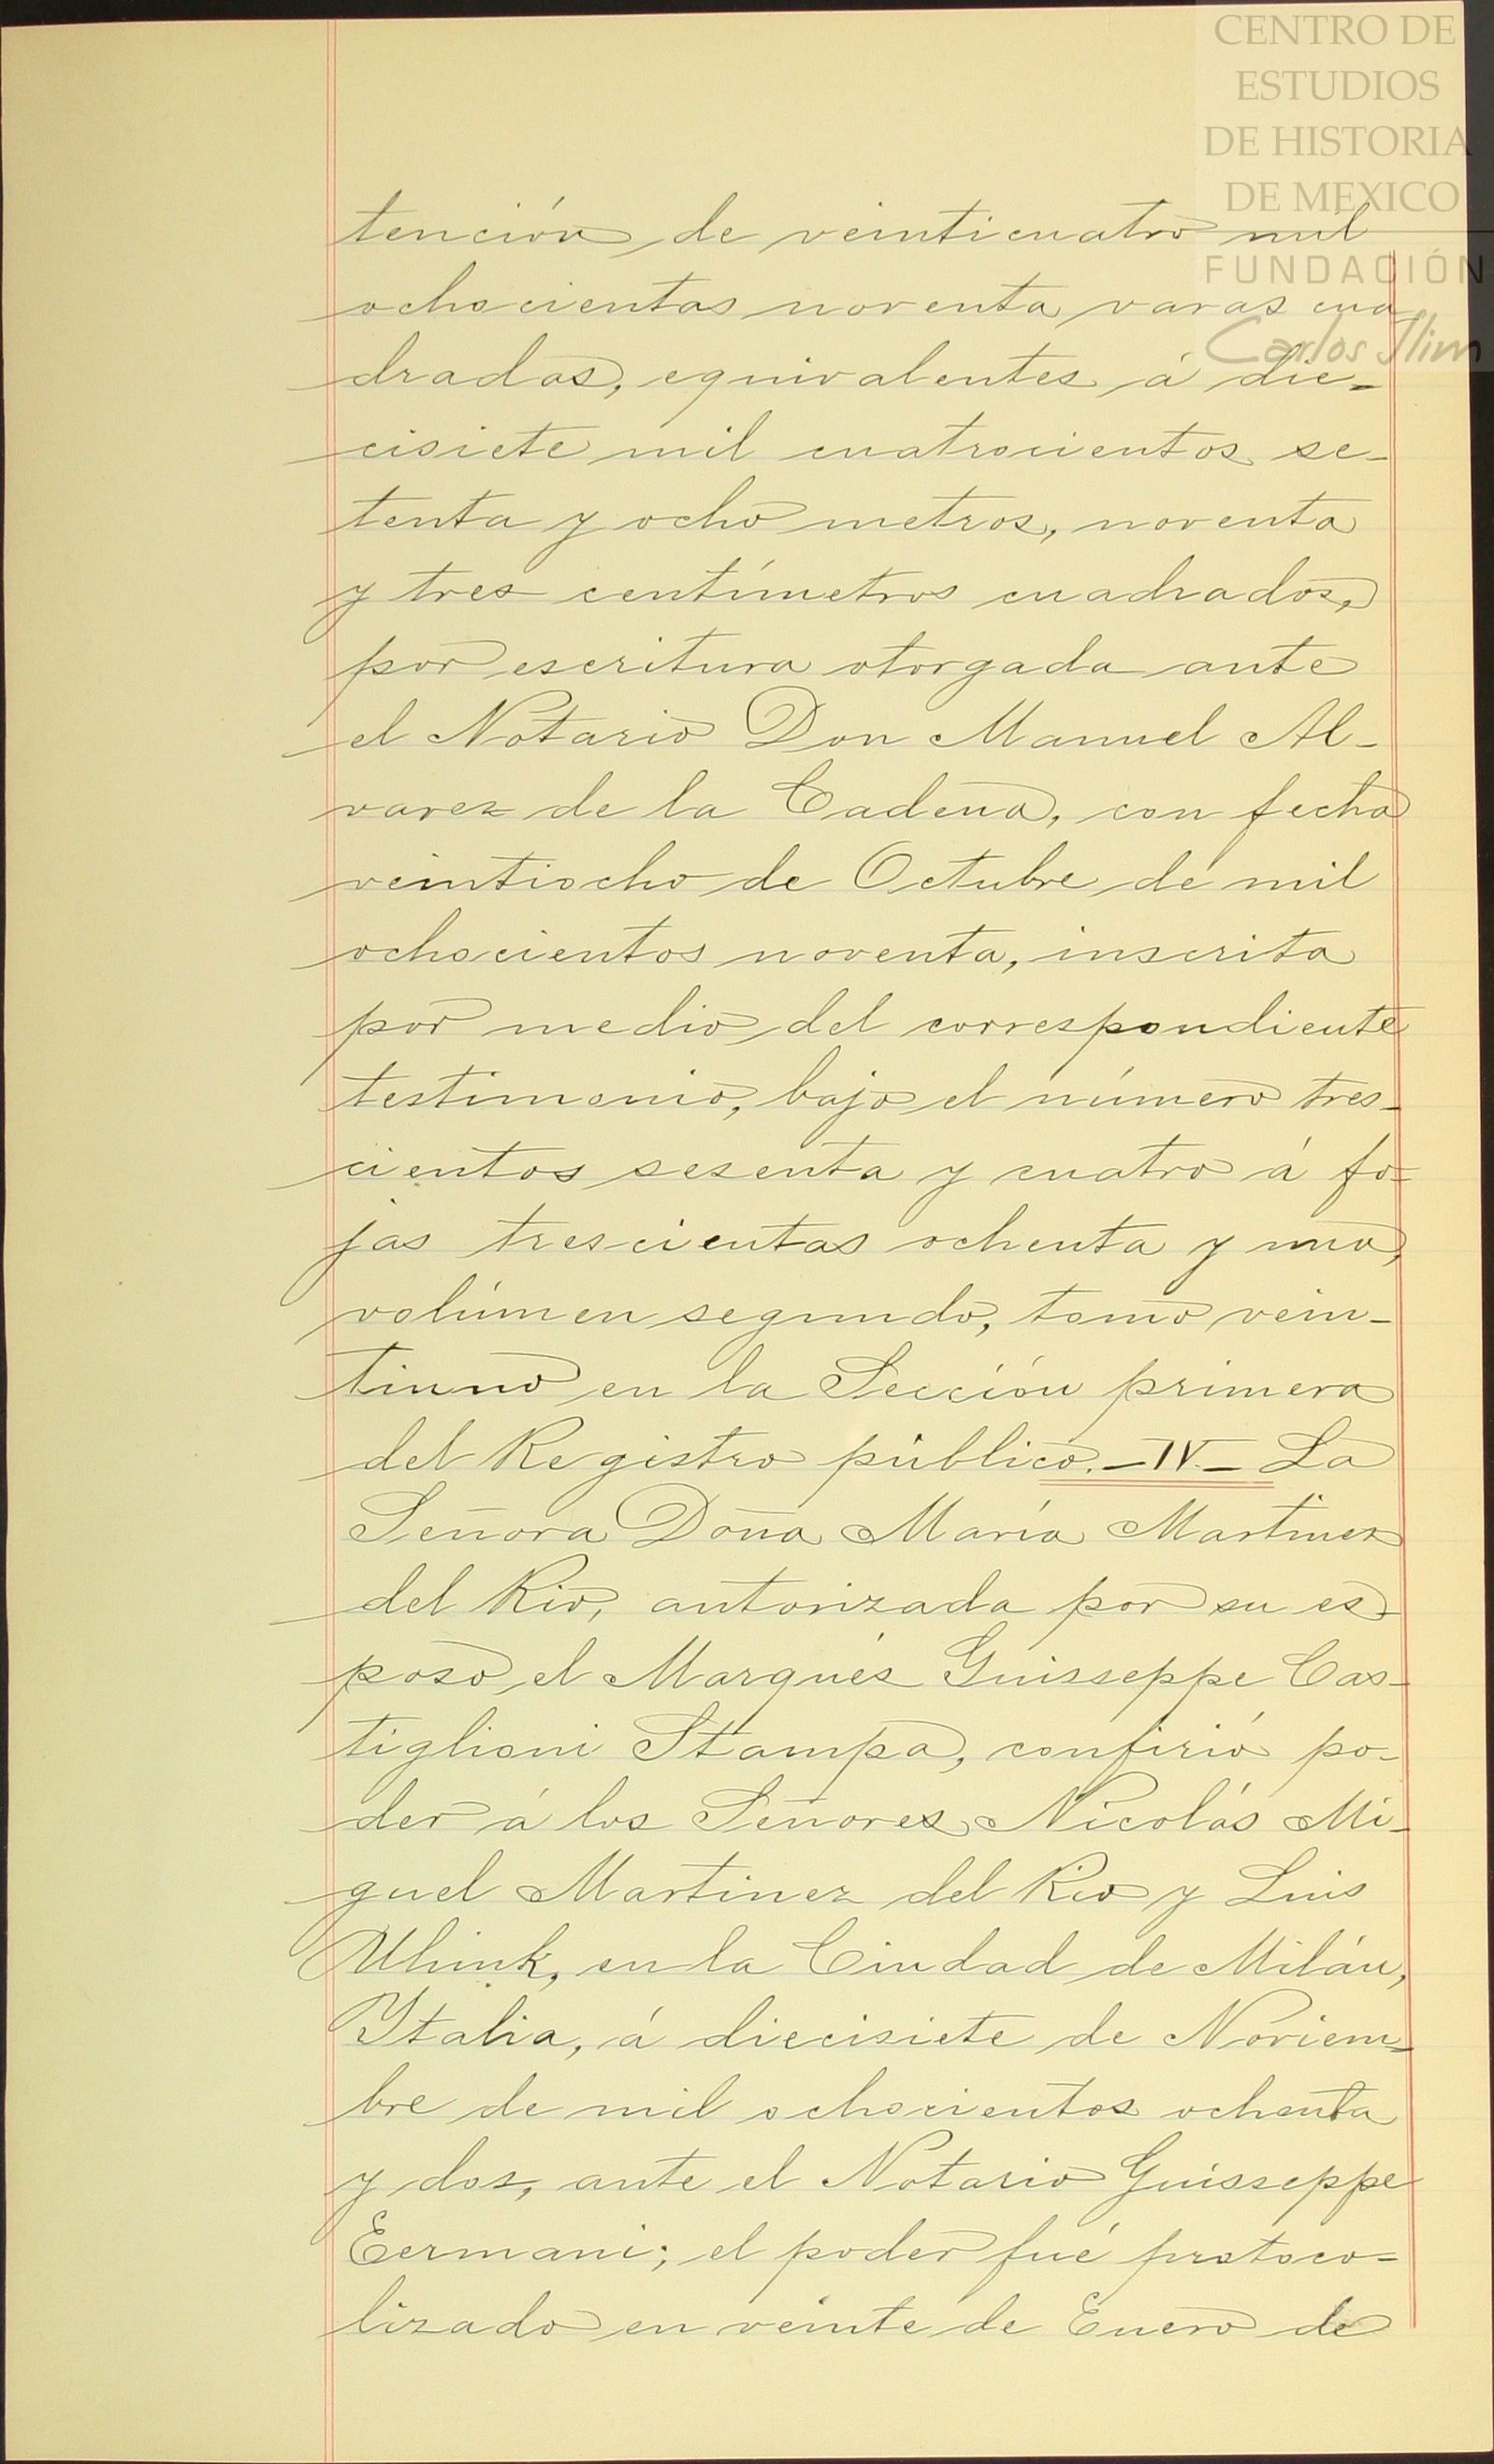 CENTRO DE
ESTUDIOS
DE HISTORIA
DE MEXICO
FUNDACIÓN
Carlos Slim
tención de veinticuatro mil
ochocientas noventa varas cua
dradas, equivalentes á die-
cisiete mil cuatrocientos se-
tenta y ocho metros, noventa
y tres centímetros cuadrados,
por escritura otorgada ante
el Notario Don Manuel Al-
varez de la Cadena, con fecha
veintiocho de Octubre de mil
ochocientos noventa, inscrita
por medio del correspondiente
testimonio, bajo el número tres-
cientos sesenta y cuatro á fo-
jas trescientas ochenta y una,
volúmen segundo, tomo vein-
tiuno en la Sección primera
del Registro público.-IV.- La
Señora Doña María Martinez
del Rio, autorizada por su es-
poso el Marqués Guisseppe Cas-
tiglioni Stampa, confirió po-
der á los Señores Nicolás Mi-
guel Martinez del Rio y Luis
Uhink, en la Ciudad de Milán,
Italia, á diecisiete de Noviem-
bre de mil ochocientos ochenta
y dos, ante el Notario Guisseppe
Eermani; el poder fué protoco-
lizado en veinte de Enero de